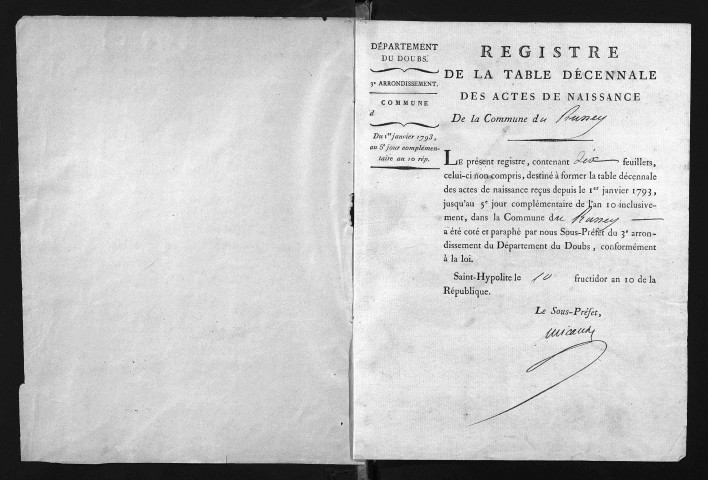 DÉPARTEMENT
DU DOUBS.
3e ARRONDISSEMENT.
COMMUNE
d
Du 1er janvier 1793,
au 5e jour complémen-
taire an 10 rép.
REGISTRE
DE LA TABLE DÉCENNALE
DES ACTES DE NAISSANCE
De la Commune du Russey
LE présent registre, contenant dix feuillets,
celui-ci non compris, destiné à former la table décennale
des actes de naissance reçus depuis le 1er janvier 1793,
jusqu'au 5e jour complémentaire de l'an 10 inclusive-
ment, dans la Commune du Russey
a été coté et paraphé par nous Sous-Préfet du 3e arron-
dissement du Département du Doubs, conformément
à la loi.
Saint-Hypolite le 10 fructidor an 10 de la
République.
Le Sous-Préfet,
micaud